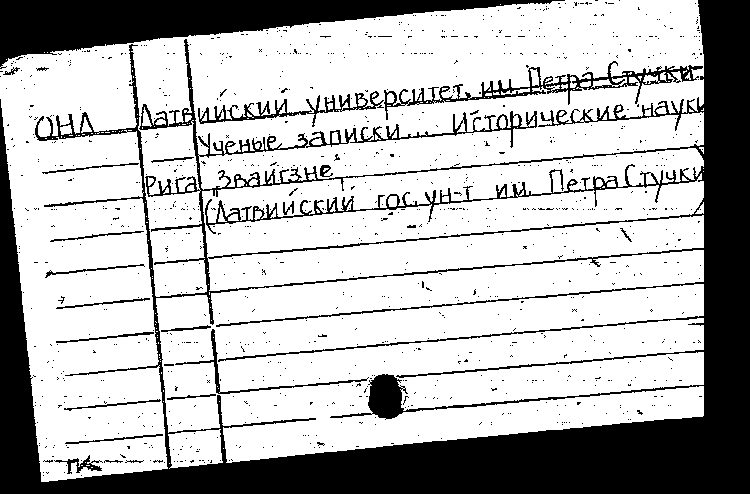 ОНЛ Латвийский университет. им. Петра Стучки.
Ученые записки... Исторические науки
Рига „Звайгзне"
(Латвийский гос. ун-т им. Петра Стучки)
ГК